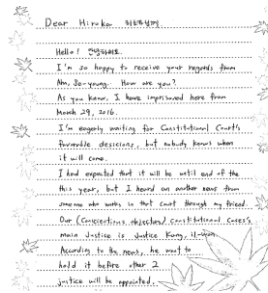 Dear Hiroka
Hello! 안녕하세요.
I'm so happy to receive your regards from
Ahn, Se-young. How are you?
As you know, I have imprisoned here from
March 29, 2016.
I'm eagerly waiting for Constitutional Court's
favorable descisions, but nobody knows when
it will come.
I had expected that it will be until end of the
this year, but I heard an another news from
someone who works in that Court through my friend.
Our (Conscientious objection) constitutional cases's
main Justice is Justice Kang, il-won.
According to the news, he want to
hold it before other 2
justice will be appointed.